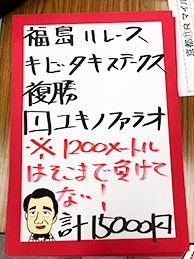 福島11レース
キビタキステークス
複勝
①ユキノファラオ
※1200メートル
はそこまで負けて
なぃ!
計15000円
京都⑪R マイル